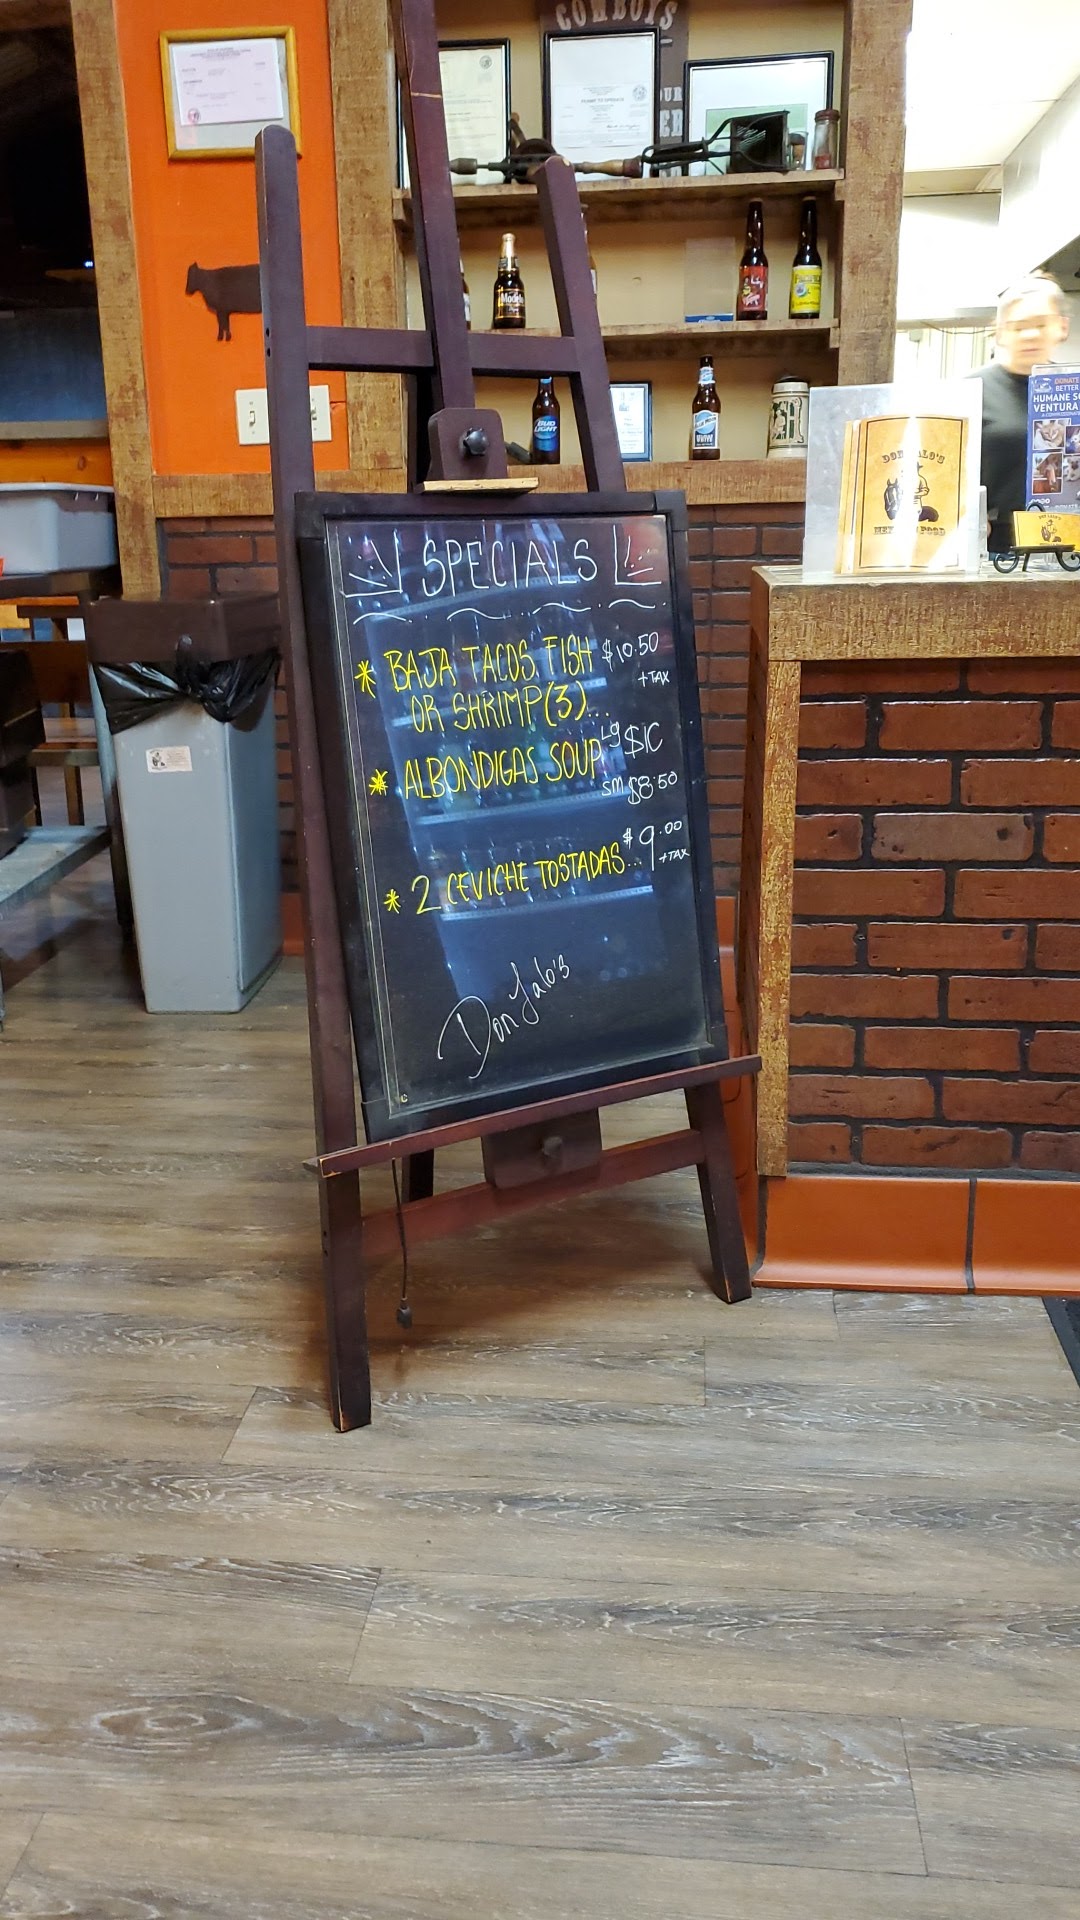 COWBOYS
PERMIT TO OPERATE
Modelo
BUD
LIGHT
DONATE
BETTER
HUMANE SO
VENTURA
DON LALO'S
MEXICAN FOOD
SPECIALS
* BAJA TACOS FISH $10.50
OR SHRIMP(3)... +TAX
* ALBONDIGAS SOUP Lg $10
SM $8.50
* 2 CEVICHE TOSTADAS... $9.00
+TAX
Don Lalo's